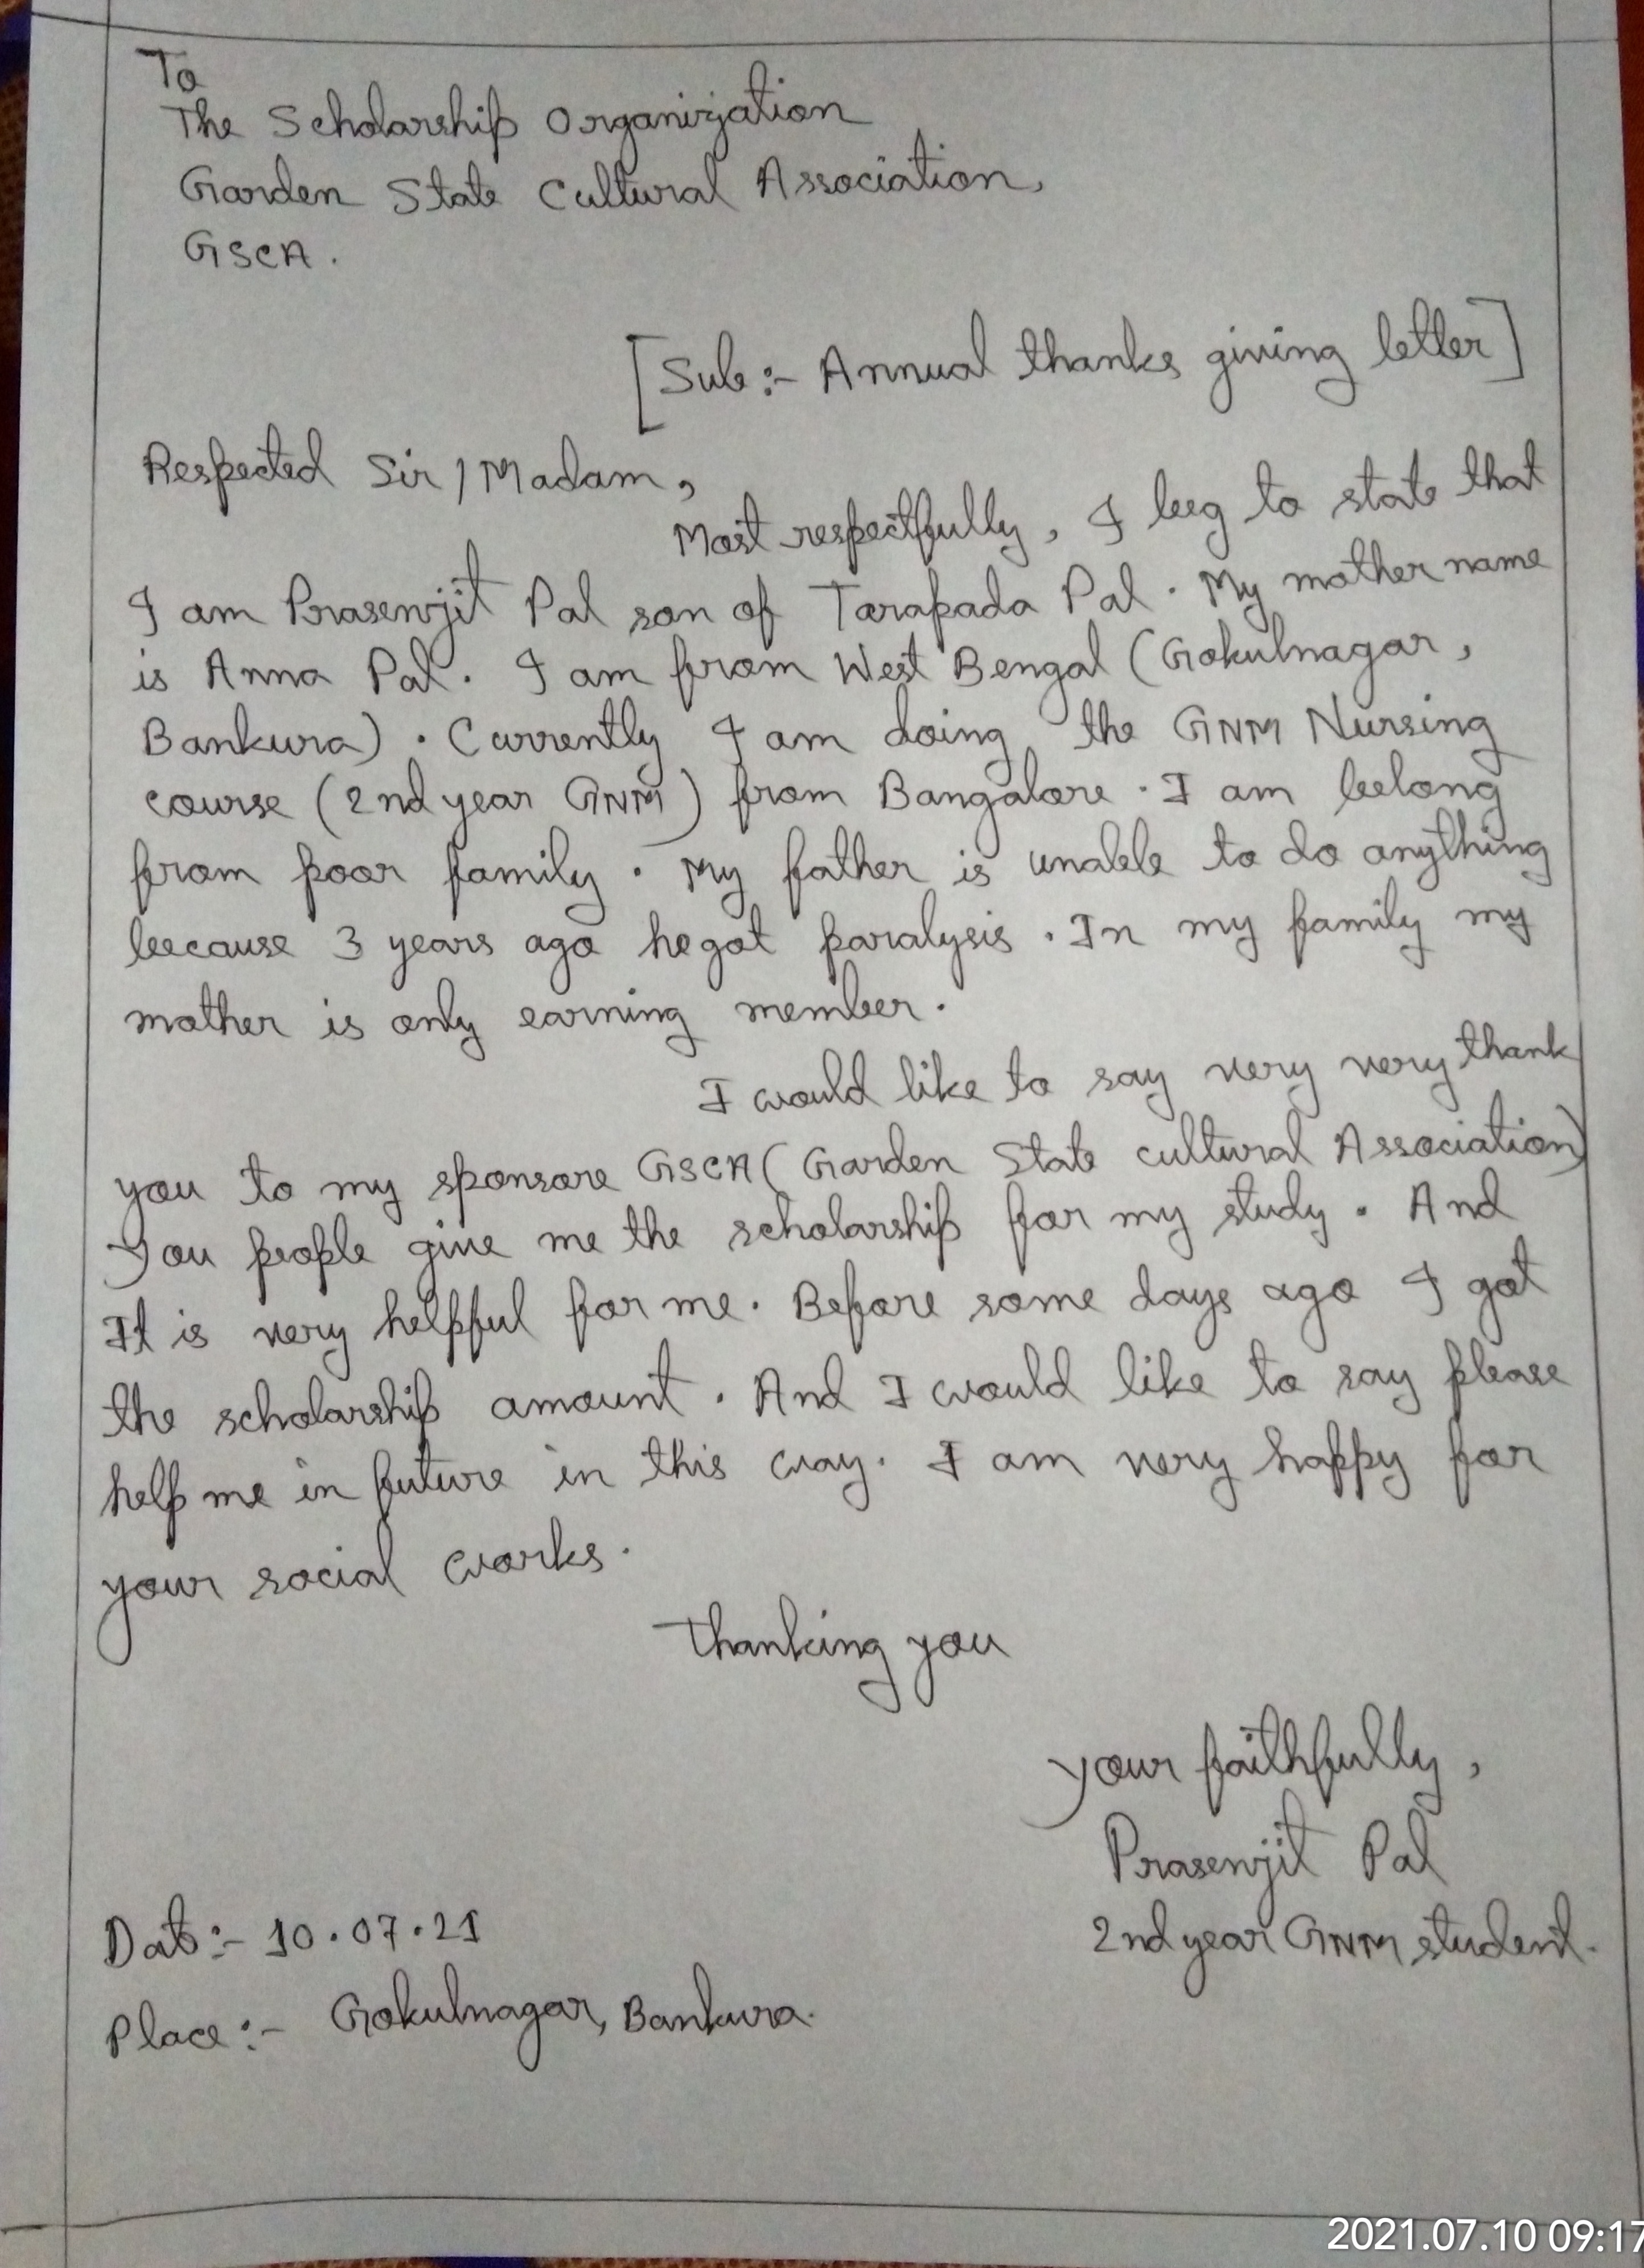 To
The Scholarship Organization
Garden State Cultural Association,
GSCA.
[Sub:- Annual thanks giving letter]
Respected Sir/Madam,
Most respectfully, I beg to state that
I am Prasenjit Pal son of Tarapada Pal. My mother name
is Anna Pal. I am from West Bengal (Gokulnagar,
Bankura). Currently I am doing the GNM Nursing
course (2nd year GNM) from Bangalore. I am belong
from poor family. My father is unable to do anything
because 3 years ago he got paralysis. In my family my
mother is only earning member.
I would like to say very very thank
you to my sponsore GSCA (Garden State cultural Association)
You people give me the scholarship for my study. And
It is very helpful for me. Before some days ago I got
the scholarship amount. And I would like to say please
help me in future in this way. I am very happy for
your social works.
Thanking you
your faithfully,
Prasenjit Pal
2nd year GNM student.
Date:- 10.07.21
Place:- Gokulnagar, Bankura.
2021.07.10 09:17